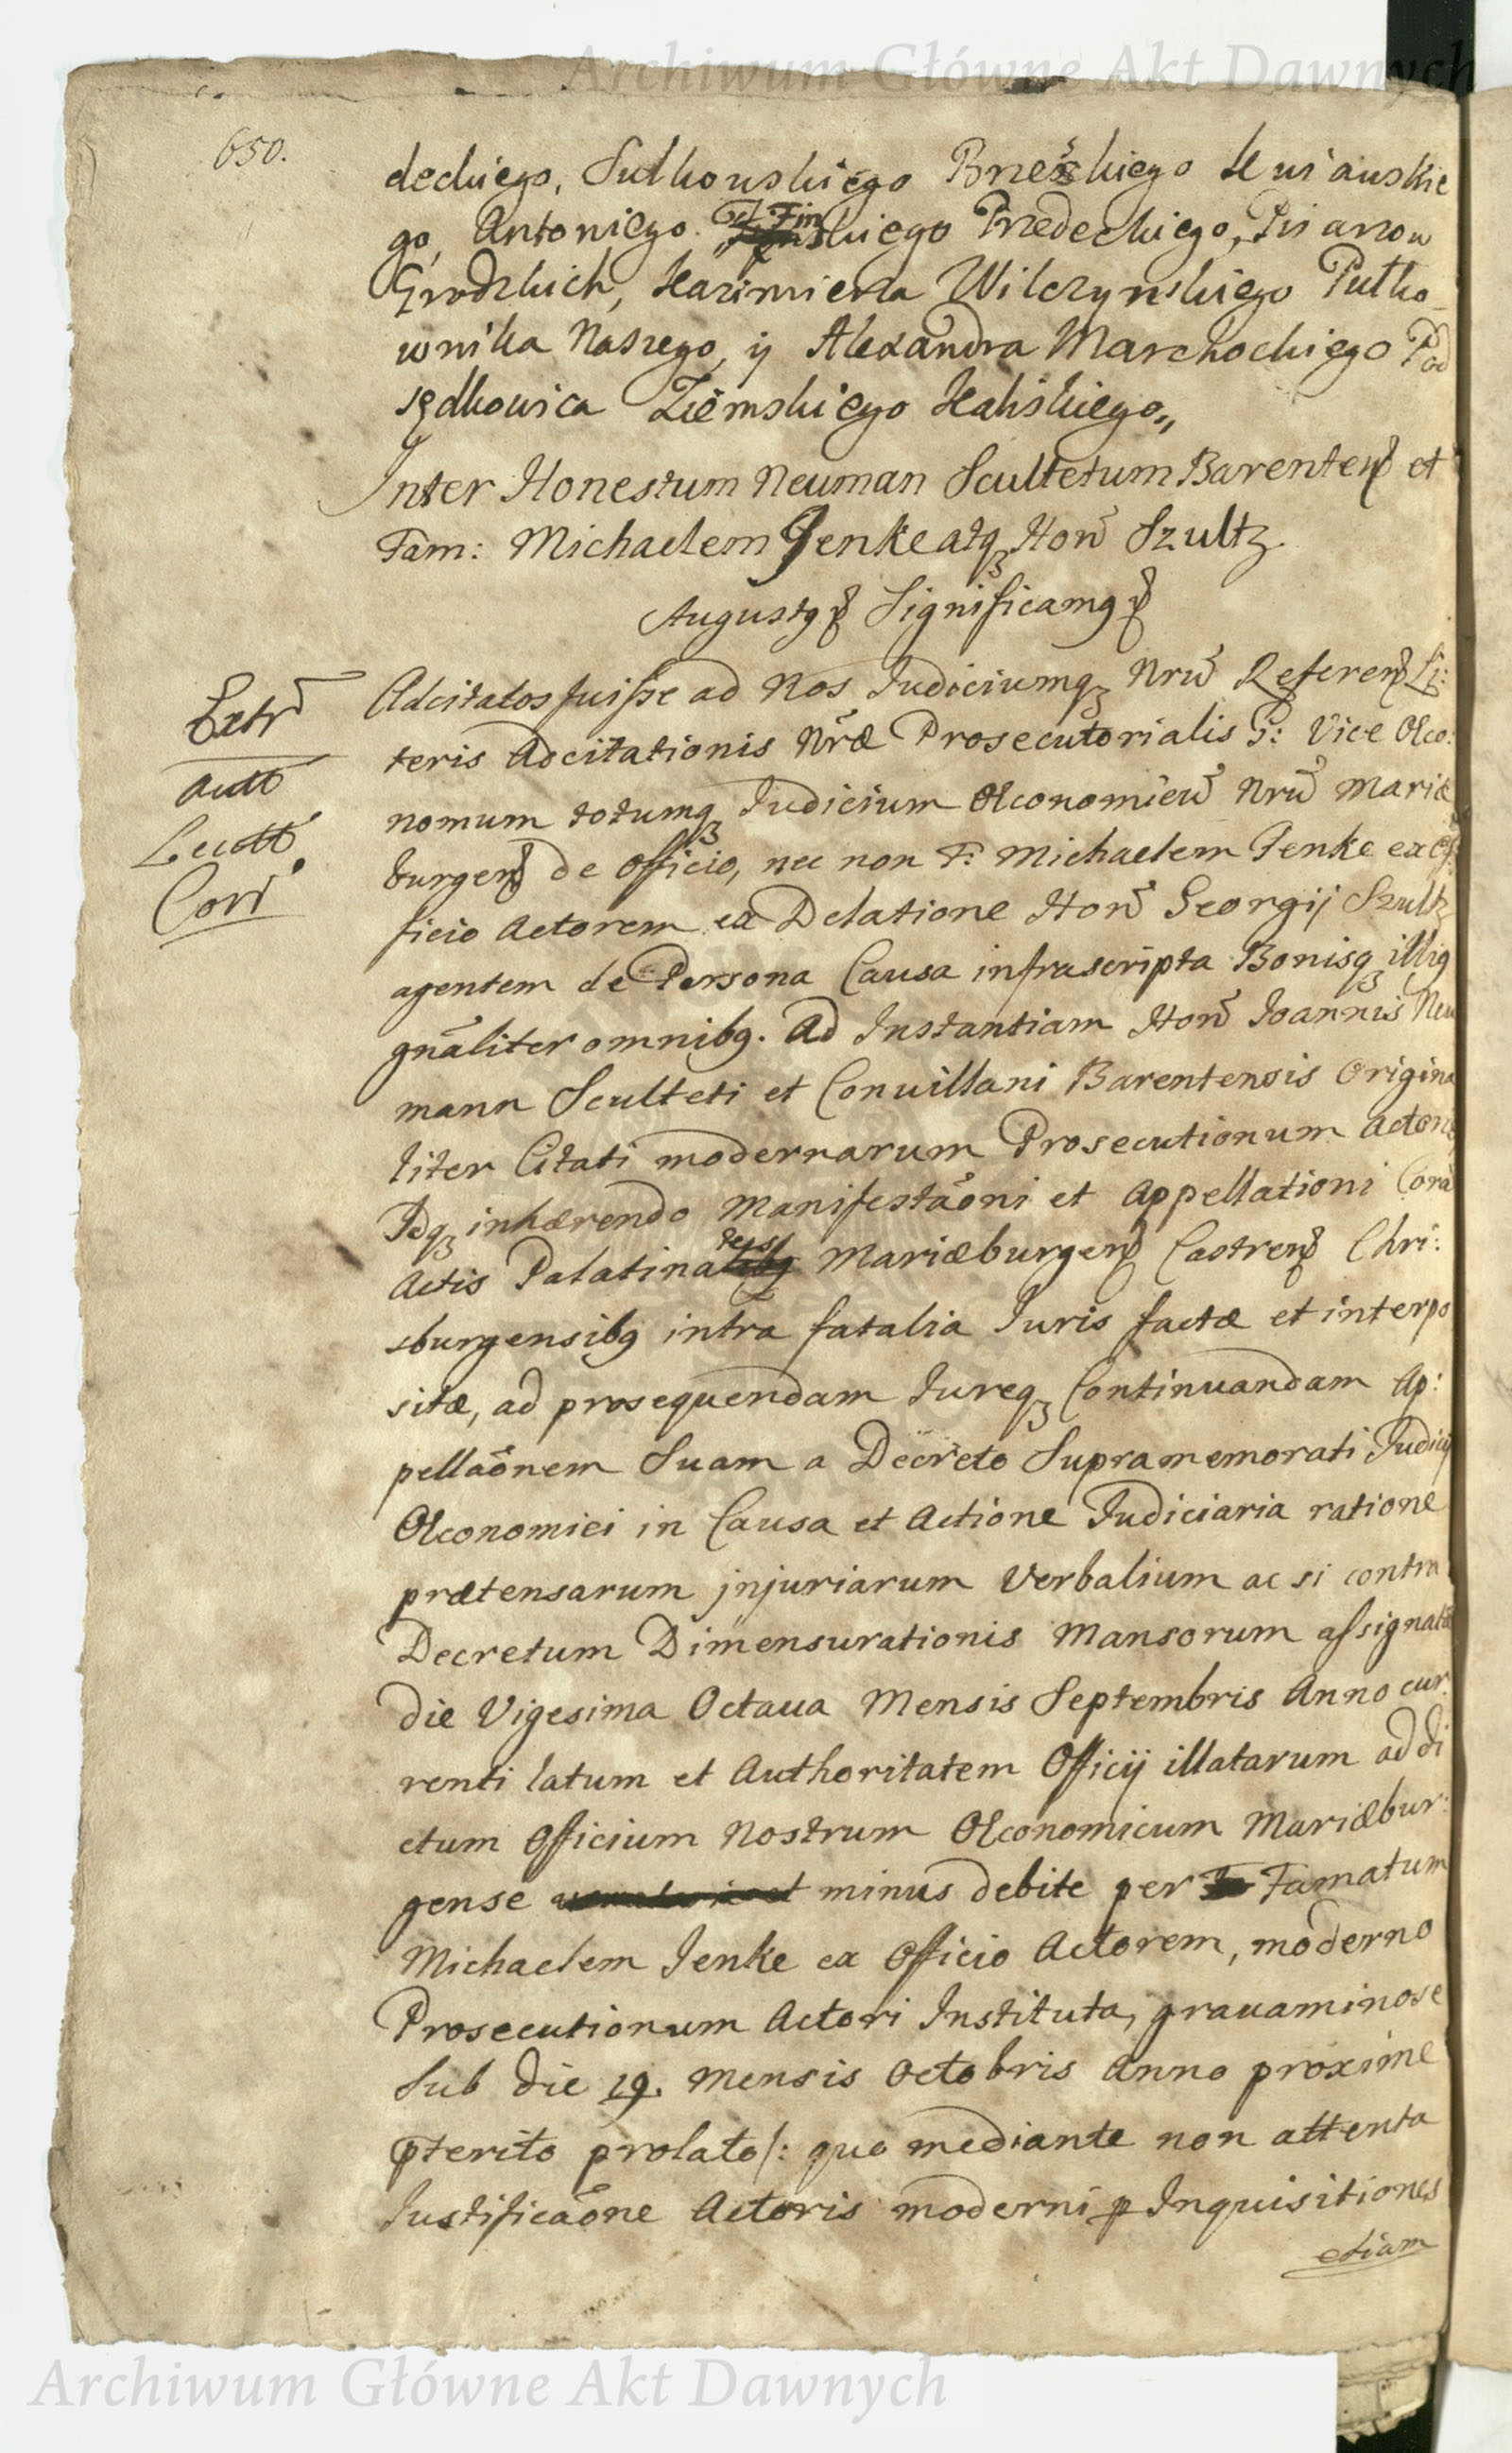 Archiwum Główne Akt Dawnych
650.
deckiego, Sulkowskiego Brzeskiego Kuiauskie
go, Antoniego skiego Przedeckiego, Pisarzow
Grodzkich, Kazimierza Wilczynskiego Pułko
wnika Naszego, y Alexandra Marchockiego Pod
sędkowica Ziemskiego Kaliskiego„
Inter Honestum Neuman Scultetum Barentens et
Fam: Michaelem Jenke atq Hon Szultz.
Augustus Significamus
Extr
Autt
Lectt
Corr
Adcitatos fuisse ad Nos Judiciumq Nrū Referen Li:
teris Adcitationis Nrae Prosecutorialis G: Vice Oeco:
nomum totumq Judicium Oeconomicū Nrū Mariae
burgens de Officio, nec non F: Michaelem Jenke ex Of
ficio Actorem ex Delatione Hon Georgij Szultz
agentem de Persona Causa infrascripta Bonisq illiq
gnāliter omnibq. Ad Instantiam Hon Joannis Neu
mann Sculteti et Conuillani Barentensis Origina
liter Citati modernarum Prosecutionum Actoris
Idq inhærendo Manifestāoni et Appellationi Corā
Actis Palatina Mariæburgens Castrens Chri:
sburgensibq intra fatalia Juris factæ et interpo
sitæ, ad prosequendam Jureq Continuandam Ap:
pellāonem Suam a Decreto Supramemorati Judicij
Oeconomici in Causa et Actione Judiciaria ratione
prætensarum jnjuriarum Verbalium ac si contra
Decretum Dimensurationis Mansorum assignatæ
die Vigesima Octaua Mensis Septembris Anno cur
renti latum et Authoritatem Officij illatarum ad di
ctum Officium Nostrum Oeconomicum Mariæbur:
gense minus debite per Famatum
Michaelem Jenke ex Officio Actorem, moderno
Prosecutionum Actori Instituta, grauaminose
Sub die 19. Mensis Octobris Anno proxime
pterito prolato/: quo mediante non attenta
Justificāone Actoris moderni p Inquisitiones
etiam
Archiwum Główne Akt Dawnych